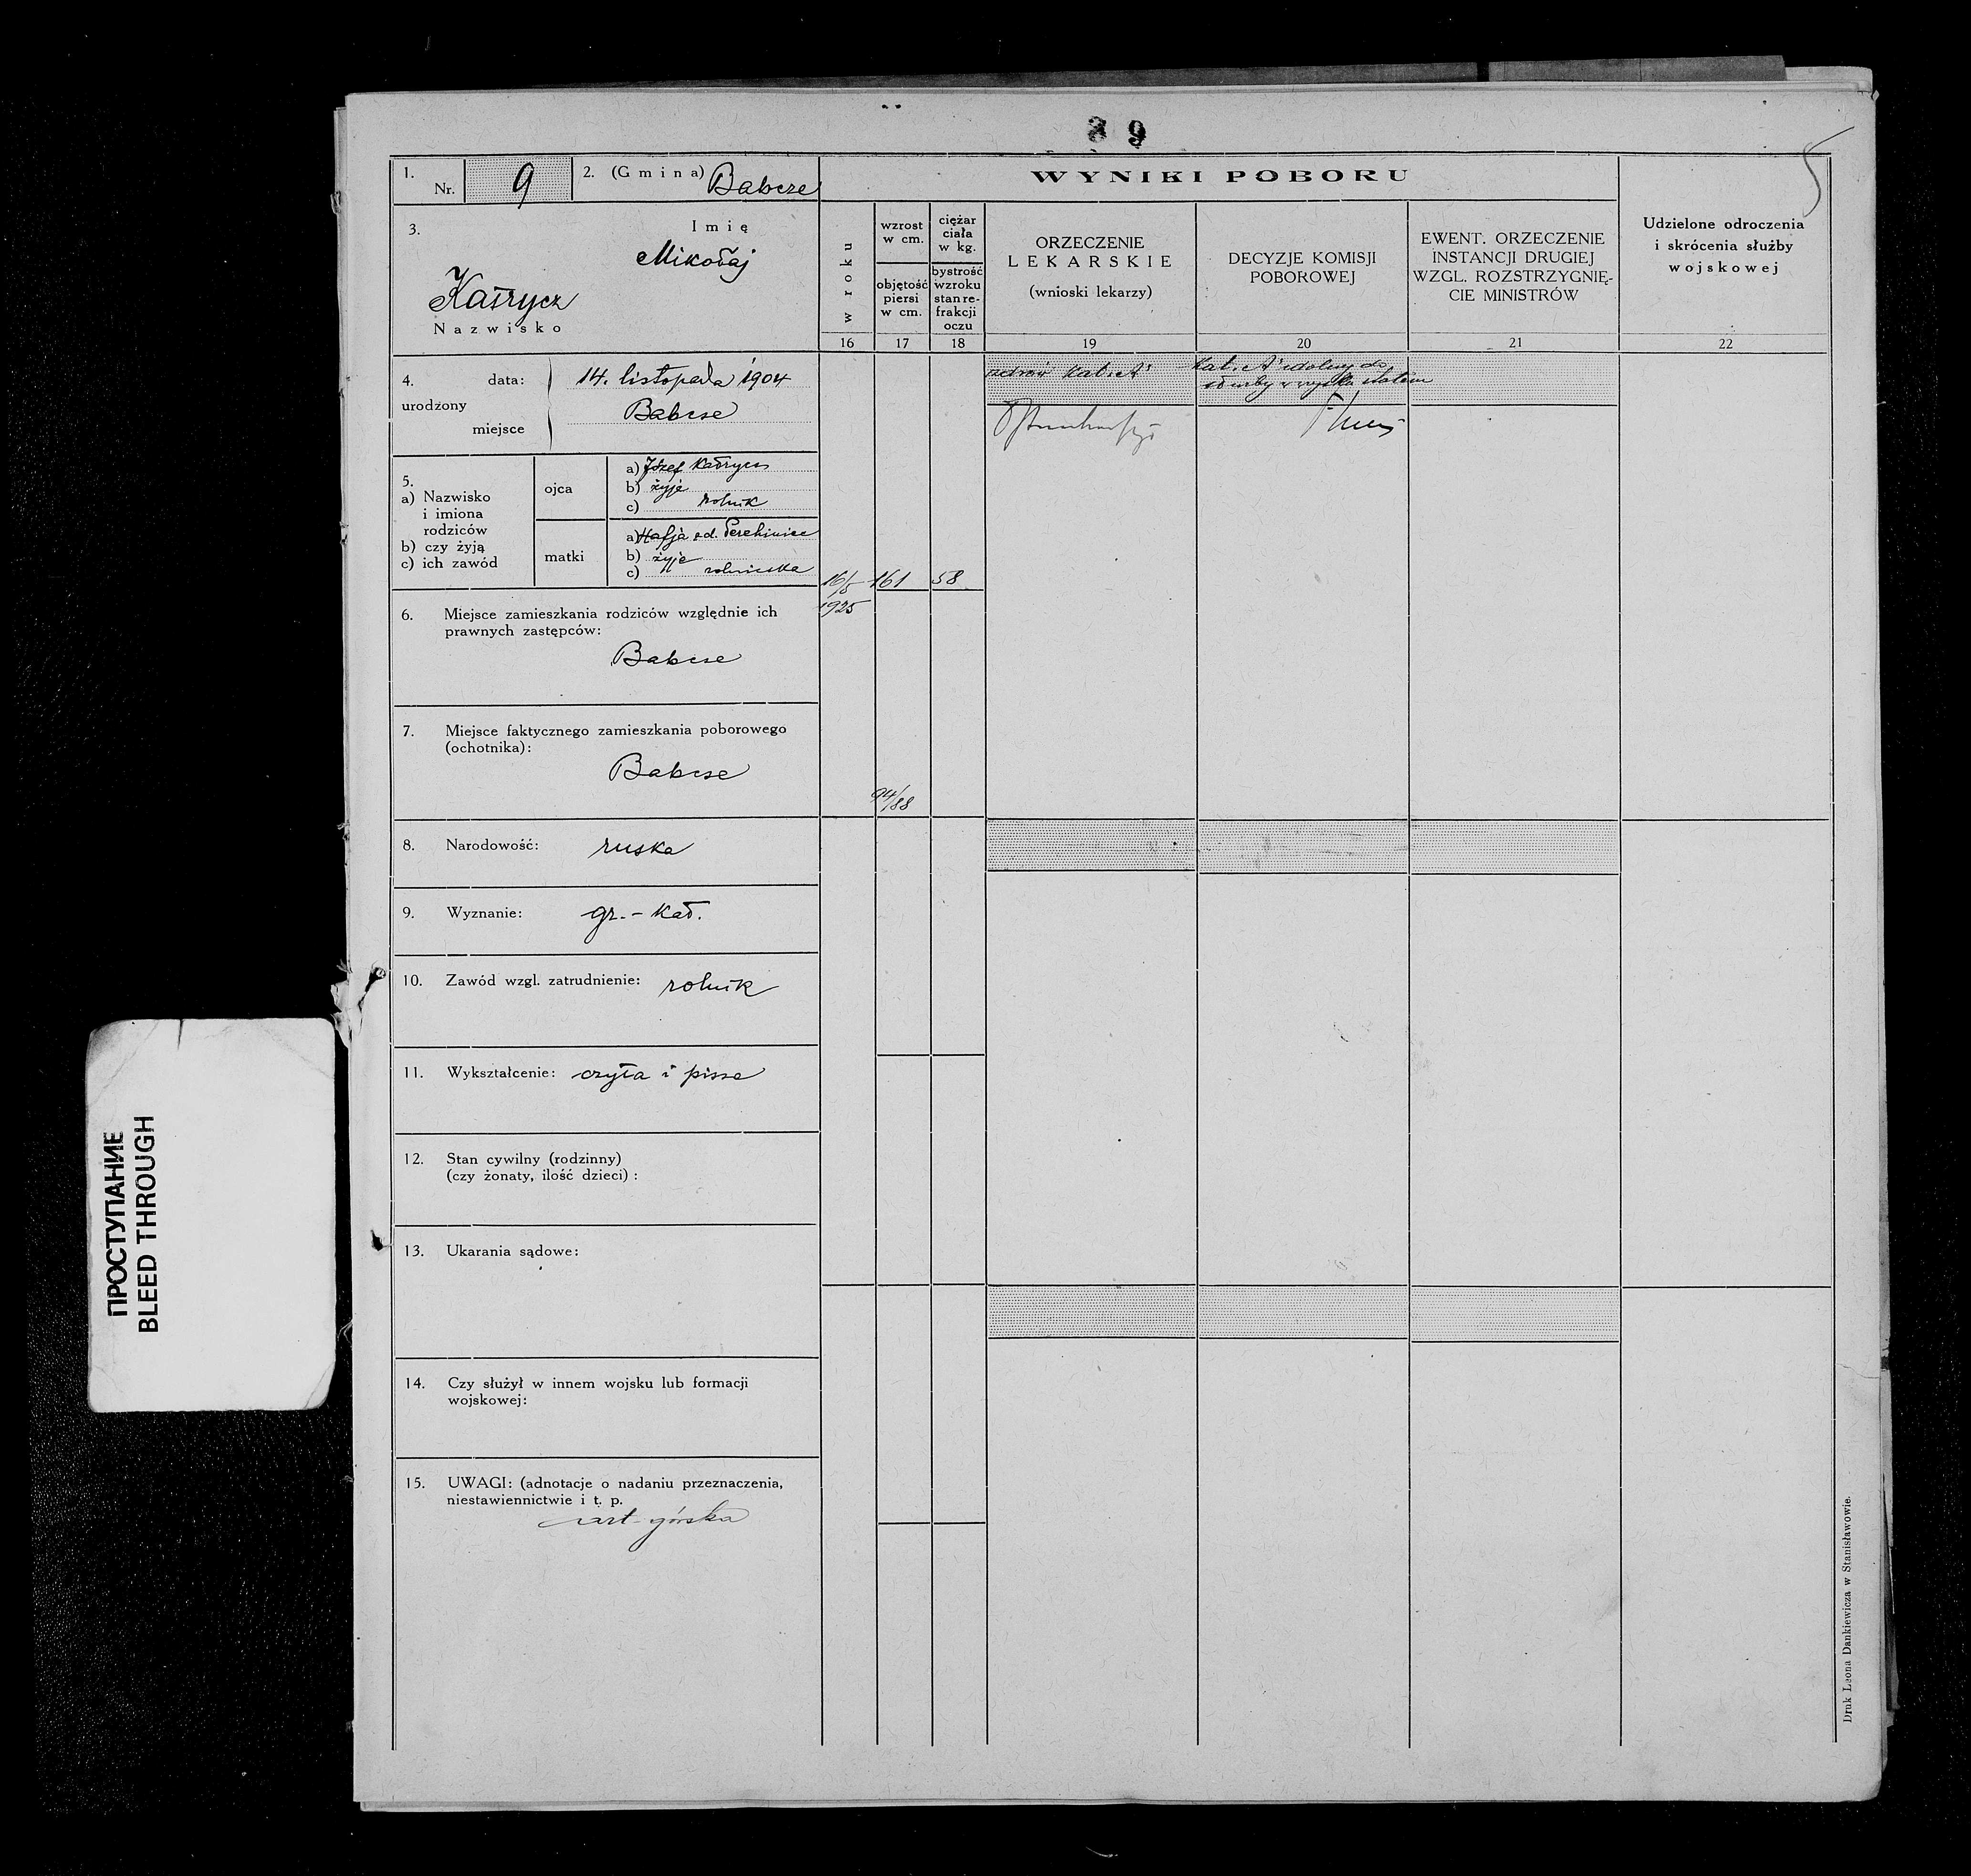 89
5
1.
Nr. 9
2. (Gmina) Babcze
WYNIKI POBORU
3.
Imię
Mikołaj
Katrycz
Nazwisko
w roku
wzrost
w cm.
objętość
piersi
w cm.
ciężar
ciała
w kg.
bystrość
wzroku
stan re-
frakcji
oczu
ORZECZENIE
LEKARSKIE
(wnioski lekarzy)
DECYZJE KOMISJI
POBOROWEJ
EWENT. ORZECZENIE
INSTANCJI DRUGIEJ
WZGL. ROZSTRZYGNIĘ-
CIE MINISTRÓW
Udzielone odroczenia
i skrócenia służby
wojskowej
16 17 18 19 20 21 22
4.
urodzony
data: 14. listopada 1904
miejsce Babcze
zdrów kat. A
Kat. A zdolny do
służby w wojsku stałem
5.
a) Nazwisko
i imiona
rodziców
b) czy żyją
c) ich zawód
ojca
a) Józef Katrycz
b) żyje
c) rolnik
matki
a) Hafja
b) żyje
c) rolniczka
16/5 161 58
1925
6. Miejsce zamieszkania rodziców względnie ich
prawnych zastępców:
Babcze
7. Miejsce faktycznego zamieszkania poborowego
(ochotnika):
Babcze
94/88
8. Narodowość: ruska
9. Wyznanie: gr.-kat.
10. Zawód wzgl. zatrudnienie: rolnik
11. Wykształcenie: czyta i pisze
12. Stan cywilny (rodzinny)
(czy żonaty, ilość dzieci):
13. Ukarania sądowe:
14. Czy służył w innem wojsku lub formacji
wojskowej:
15. UWAGI: (adnotacje o nadaniu przeznaczenia,
niestawiennictwie i t. p.
art. górska
Druk Leona Dankiewicza w Stanisławowie.
ПРОСТУПАНИЕ
BLEED THROUGH